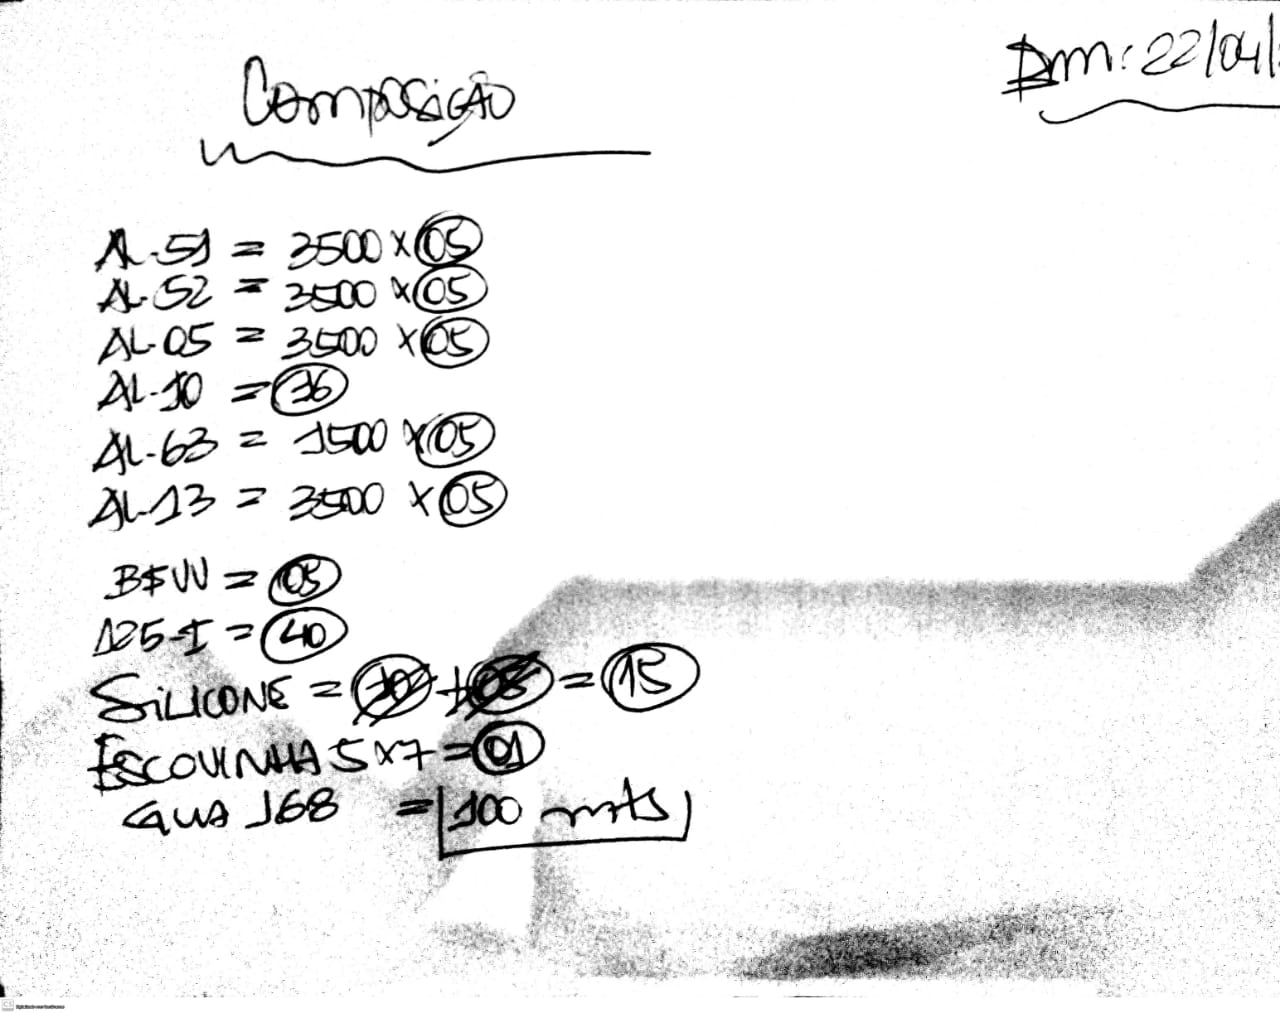 Composição
Em: 22/04/
AL-51 = 3500 x 05
AL-52 = 3500 x 05
AL-05 = 3500 x 05
AL-10 = 36
AL-63 = 1500 x 05
AL-13 = 3500 x 05
= 05
125-I = 40
SiLICONE = + = 15
ESCOVINHA 5x7 = 01
GUA 168 = 100 mts